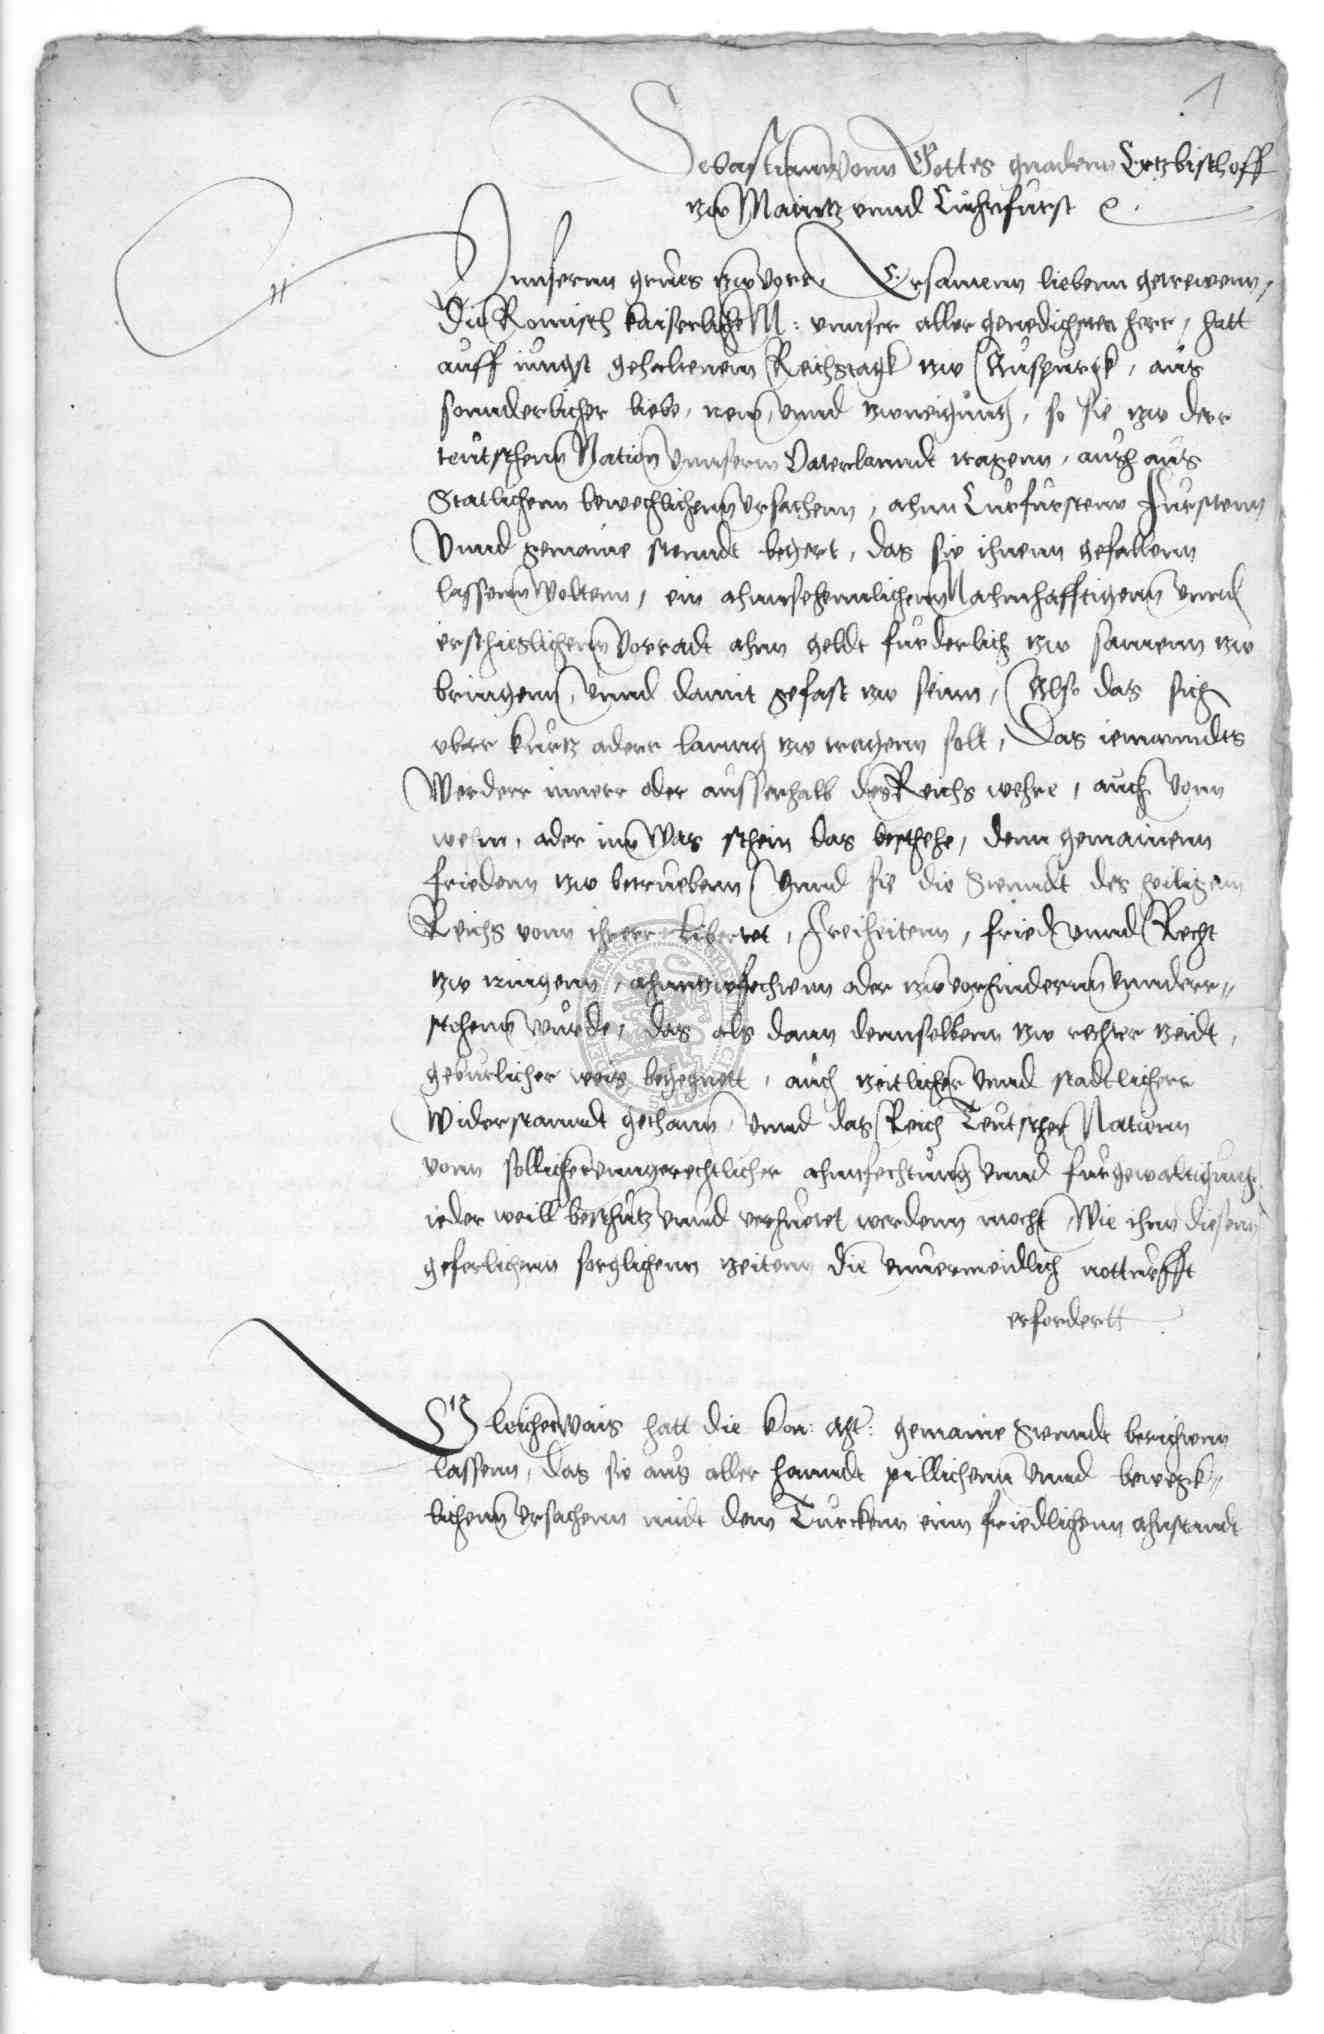 1
Sebastiann Vonn Gottes gnadenn Ertzbischoff
zw Maintz vnnd Cuhrfurst e.
Vnnsernn grues zw vorr, Ersamenn liebenn getrewenn,
Die Romisch kaiserliche M: vnnser aller genedichster herr, hatt
auff iungst gehaltenem Reichstagk zw Auspurgk, aus
sonnderlicher liebe, vnnd zwneigung, so sie zw derr
teutschenn Nation vnnserm Vaterlanndt tragenn, auch aus
Statlichenn beweglichenn vrsachenn, ahnn Curfurstenn Furstenn
Vnnd gemaine stenndt begert, das sie ihnenn gefallenn
lassenn woltenn, ein ahnsehennlichenn Nahmhafftigenn vnnd
erschieslichenn Vorradt ahnn geldt furderlich zw samenn zw
bringenn, vnnd damit gefast zw seinn, Also das sich
vberr kurtz aderr lanng zw tragenn solt, Das iemanndts
Werderr innerr oder ausserhalb des Reichs wehre, auch vonn
wehm, ader inn was schein das beschehe, denn gemainenn
friedenn zw betruebenn Vnnd sie die Stenndt des heiligenn
Reichs vonn ihrerr libertet, Freiheitenn, fried vnnd Recht
zw tringenn, ahnntzwfechtenn oder zw vorhindernn vnnderr-
stehenn wurde, das als dann dennselbenn zw rechter zeidt,
geburlicher weis begegnett, auch zeitlicher vnnd stadtlicherr
Widerstanndt gethann, vnnd das Reich Teutscher Nationn
vonn sollicher vnngerechtlicher ahnfechtung vnnd furgewaltigung,
ieder weill beschutz vnnd verhuetet werdenn mocht, Wie ihnn diesenn
geferlichenn sorglichenn zeitenn die vnuermeidlich notturfft
erfordertt
Gleicherwais hatt die kon: Mt: gemaine Stenndt berichtenn
lassenn, das sie aus aller hanndt pillichenn vnnd bewegk-
lichenn vrsachenn midt dem Turckenn einn friedlichenn ahnstandt